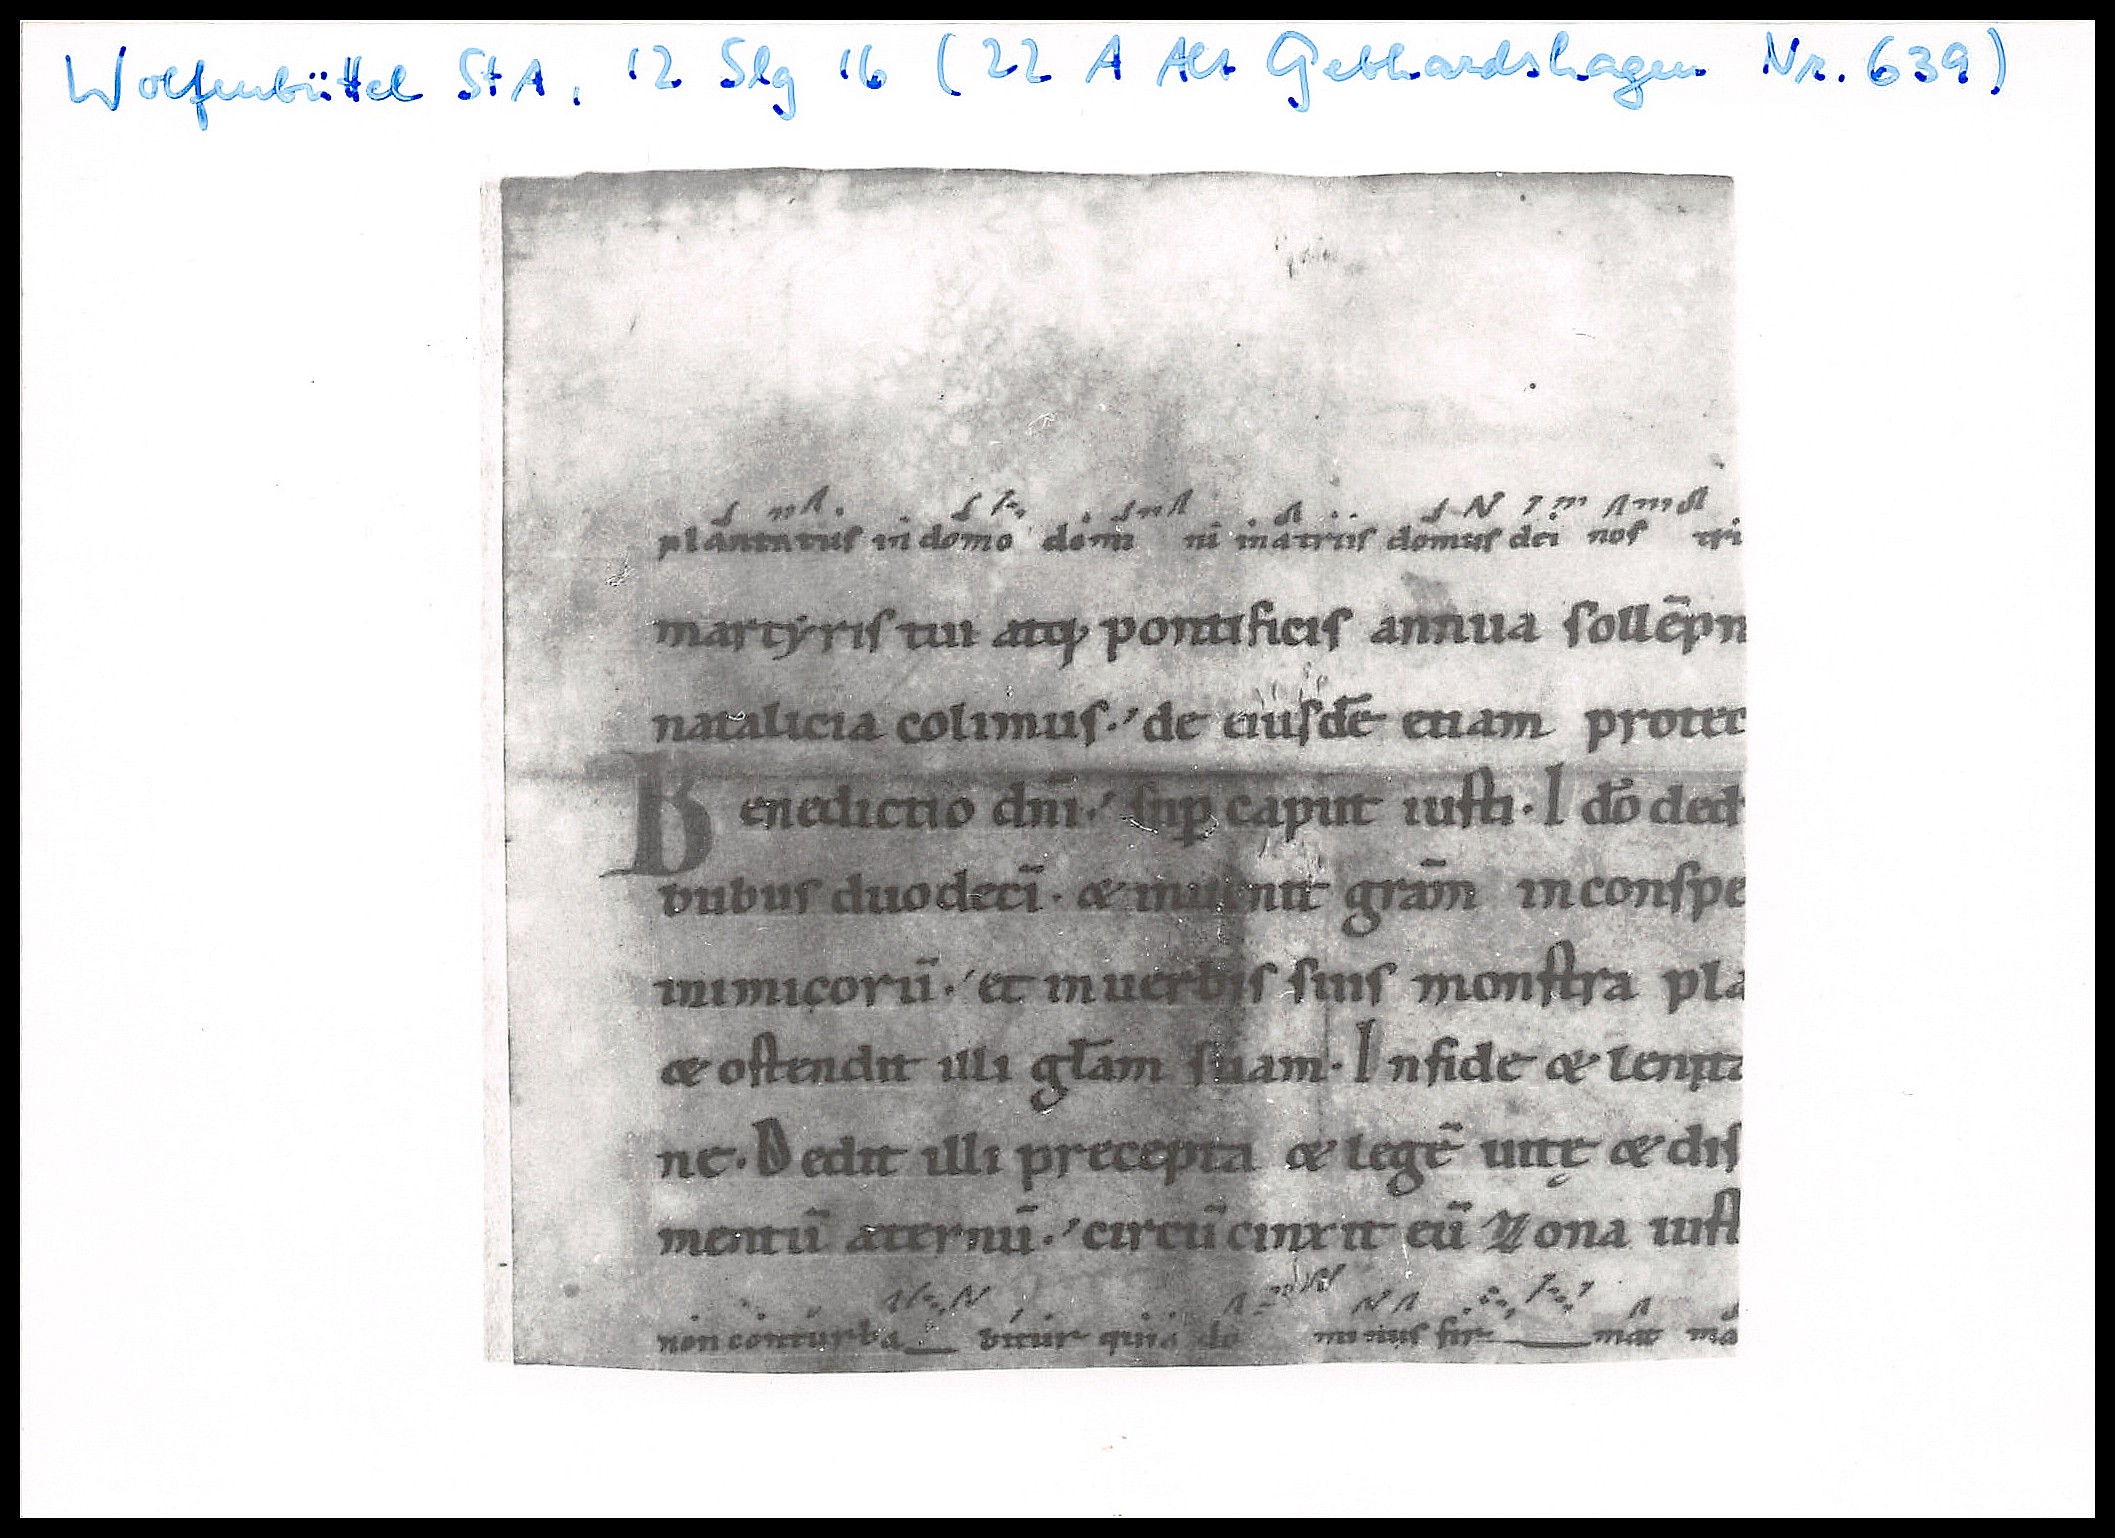 Wolfenbüttel StA, 12 Slg 16 (22 A Alt Gebhardshagen Nr. 639)
plantatus in domo domi ni in atriis domus dei nos tri
martyris tui atq; pontificis annua sollēpn
natalicia colimus. de eiusdē etiam protec
Benedictio dn̄i. sup̄ caput iusti. Ido ded
tribus duodecī. & inuenit grām in conspe
inimicorū. et in uerbis suis monstra pla
& ostendit illi glām suam. In fide & lenita
ne. Dedit illi precepta & legē uitę & dis
mentū aternū. circūcinxit eū Zona iust
non conturba bitur quia do minus fir mat ma